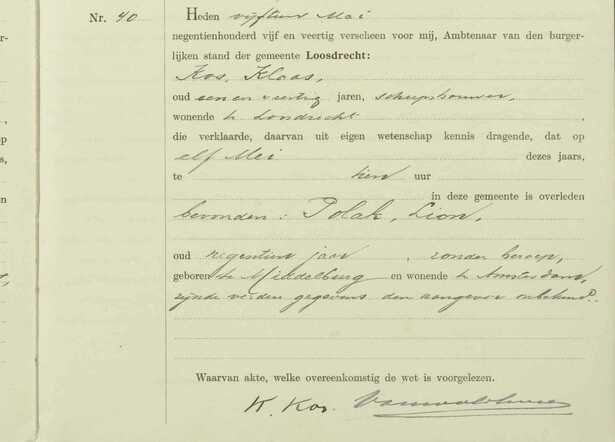 Nr. 40
Heden vijftien Mei
negentienhonderd vijf en veertig verscheen voor mij, Ambtenaar van den burger-
lijken stand der gemeente Loosdrecht:
Kos, Klaas,
oud een en veertig jaren, scheepsbouwer,
wonende te Loosdrecht,
die verklaarde, daarvan uit eigen wetenschap kennis dragende, dat op
elf Mei dezes jaars,
te tien uur
in deze gemeente is overleden
bevonden: Polak, Lion,
oud negentien jaar, zonder beroep,
geboren te Middelburg en wonende te Amsterdam,
zijnde verdere gegevens den aangever onbekend.
Waarvan akte, welke overeenkomstig de wet is voorgelezen.
K. Kos.